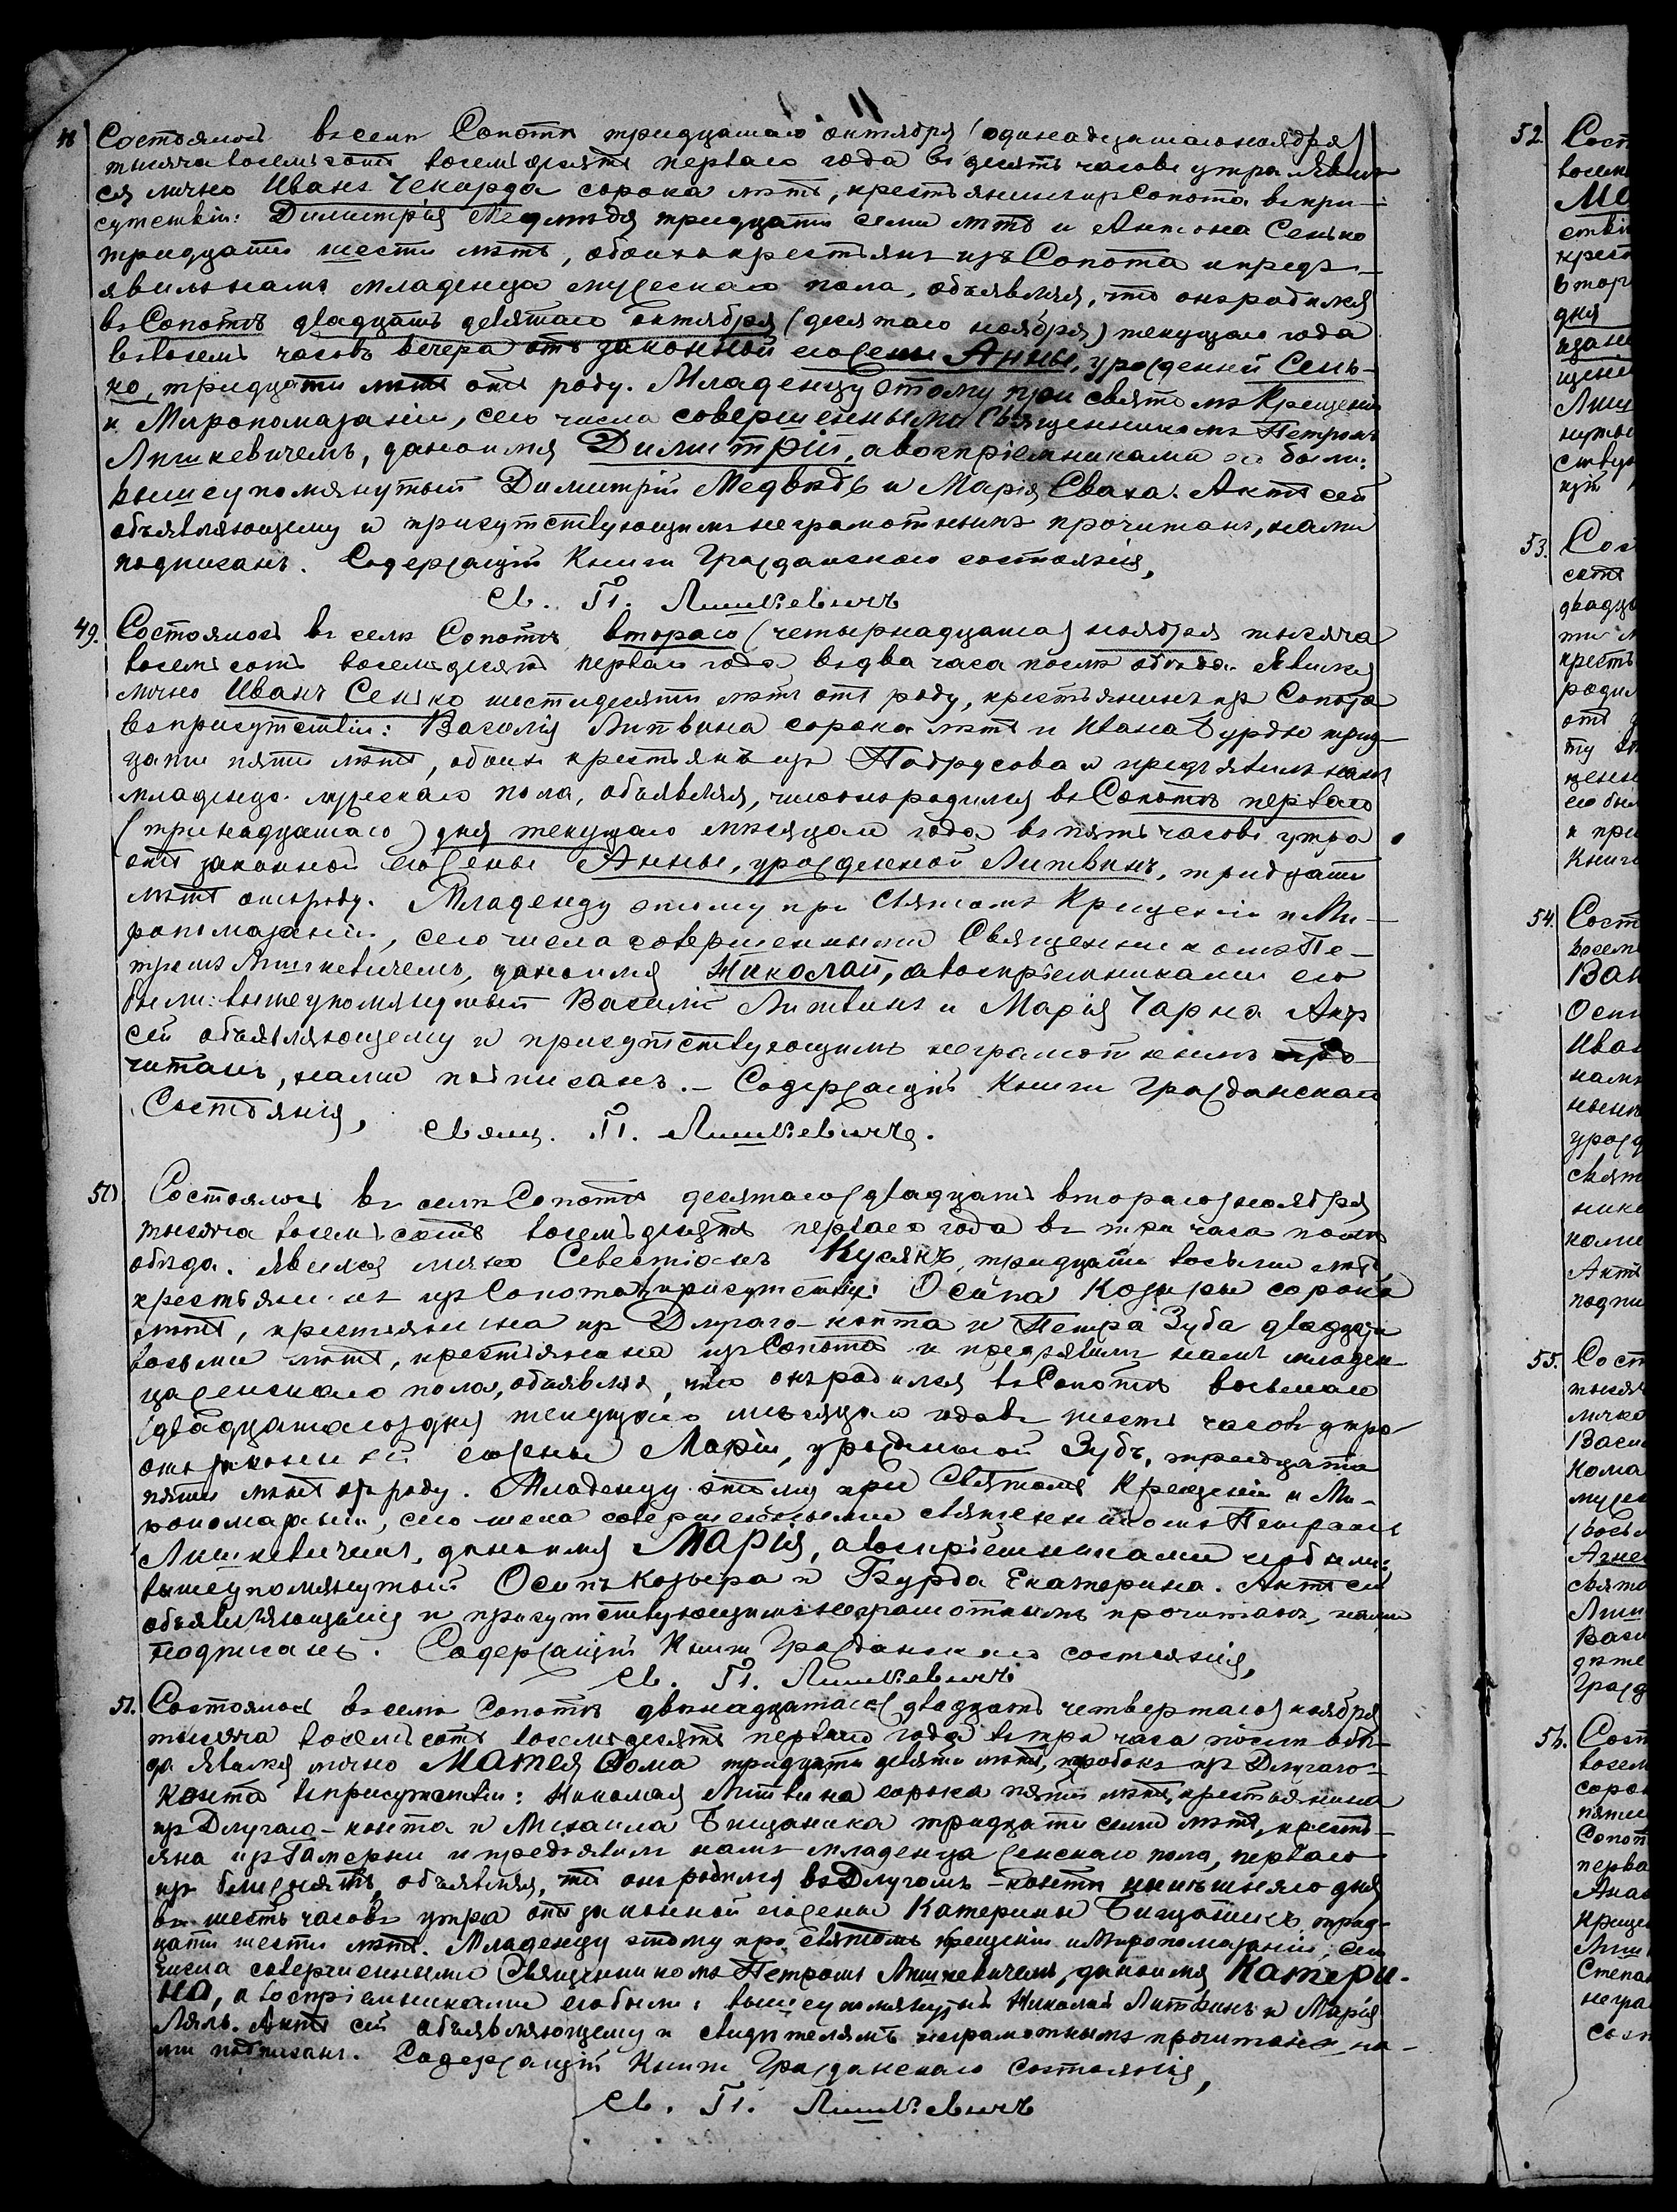 48 Состоялось въ селѣ Сопотѣ тридцатаго октября (одинадцатаго ноября)
тысяча восемьсотъ восемьдесятъ перваго года въ десять часовъ утра. Явил-
ся лично Иванъ Чекирда сорока лѣтъ, крестьянинъ изъ Сопота въ при-
сутствіи: Димитрія Медвѣдя тридцати семи лѣтъ и Антона Сенько
тридцати шести лѣтъ, обоихъ крестьянъ изъ Сопота и предъ-
явилъ намъ младенца мужескаго пола, объявляя, что онъ родился
въ Сопотѣ двадцать девятаго октября (десятаго ноября) текущаго года
въ восемь часовъ вечера отъ законной его жены Анны, урожденной Сень-
ко, тридцати лѣтъ отъ роду. Младенцу этому при святомъ Крещеніи
и Миропомазаніи, сего числа совершенными Священникомъ Петромъ
Лишкевичемъ, дано имя Димитрій, а воспріемниками его были:
вышеупомянутый Димитрій Медвѣдь и Марія Сваха. Актъ сей
объявляющему и присутствующимъ неграмотнымъ прочитанъ, нами
подписанъ. Содержащій Книги Гражданскаго состоянія,
Св. П. Лишкевичъ
49. Состоялось въ селѣ Сопотѣ второго (четырнадцатаго) ноября тысяча
восемьсотъ восемьдесятъ перваго года въ два часа послѣ обѣда. Явился
лично Иванъ Сенько шестидесяти лѣтъ отъ роду, крестьянинъ изъ Сопота
въ присутствіи: Василія Литвина сорока лѣтъ и Ивана Бурдю трид-
цати пяти лѣтъ, обоихъ крестьянъ изъ Подрусова и предъявилъ намъ
младенца мужескаго пола, объявляя, что онъ родился въ Сопотѣ перваго
(тринадцатаго) дня текущаго мѣсяца и года въ пять часовъ утра
отъ законной его жены Анны, урожденной Литвинъ, тридцати
лѣтъ отъ роду. Младенцу этому при Святомъ Крещеніи и Ми-
ропомазаніи, сего числа совершенными Священникомъ Пе-
тромъ Лишкевичемъ, дано имя Николай, а воспріемниками его
были: вышеупомянутый Василій Литвинъ и Марія Чарна Актъ
сей объявляющему и присутствующимъ неграмотнымъ про-
читанъ, нами подписанъ. – Содержащій Книги Гражданскаго
Состоянія, Свящ. П. Лишкевичъ.
50. Состоялось въ селѣ Сопотѣ десятаго (двадцать второго) ноября
тысяча восемьсотъ восемьдесятъ перваго года въ три часа послѣ
обѣда. Явился лично Севестіанъ Кусякъ, тридцати восьми лѣтъ,
крестьянинъ изъ Сопота въ присутствіи: Осипа Козыры сорока
лѣтъ, крестьянина изъ Длугаго-конта и Петра Зуба двадцати
восьми лѣтъ, крестьянина изъ Сопота и предъявилъ намъ младен-
ца женскаго пола, объявляя, что онъ родился въ Сопотѣ восьмаго
(двадцатаго) дня текущаго мѣсяца и года въ шесть часовъ утра
отъ законной его жены Маріи, урожденной Зубъ, тридцати
пяти лѣтъ отъ роду. Младенцу этому при Святомъ Крещеніи и Ми-
ропомазаніи, сего числа совершенными священникомъ Петромъ
Лишкевичемъ, дано имя Марія, а воспріемниками его были:
вышеупомянутый Осипъ Козыра и Бурда Екатерина. Актъ сей
объявляющему и присутствующимъ неграмотнымъ прочитанъ, нами
подписанъ. Содержащій Книги Гражданскаго состоянія,
Св. П. Лишкевичъ
51. Состоялось въ селѣ Сопотѣ двѣнадцатаго (двадцать четвертаго) ноября
тысяча восемьсотъ восемьдесятъ перваго года въ три часа послѣ обѣ-
да Явился лично Матея Сома тридцати девяти лѣтъ, изъ Длугаго-
Конта въ присутствіи: Николая Литвина сорока пяти лѣтъ, крестьянина
изъ Длугаго-конта и Михаила Бицаника тридцати семи лѣтъ, кресть-
яна изъ Гамерни и предъявилъ намъ младенца женскаго пола, перваго
изъ близнятъ, объявляя, что онъ родился въ Длугомъ-контѣ нынѣшняго дня
въ шесть часовъ утра отъ законной его жены Катерины Бицаникъ, трид-
цати шести лѣтъ. Младенцу этому при святомъ крещеніи и Миропомазаніи, сего
числа совершенными Священникомъ Петромъ Лишкевичемъ, дано имя Катери-
на, а воспріемниками его были: вышеупомянутый Николай Литвинъ и Марія
Ляль. Актъ сей объявляющему и свидѣтелямъ неграмотнымъ прочитанъ, на-
ми подписанъ. Содержащій Книги Гражданскаго Состоянія,
Св. П. Лишкевичъ
52. Сост
восем
Ме
ствіи
крест
втор
дня
щені
Лиш
53. Сос
сотъ
двадца
кресть
роди
отъ
его был
и при
Книги
54. Сост
восем
Ван
Осип
Иван
намъ
урожд
свят
Актъ
подпи
55. Сост
тысяч
лично
Васи
свято
Лиш
Васи
Гражд
56. Сост
восем
сорок
Сопот
перва
крещ
Лиш
Степа
негра
сост